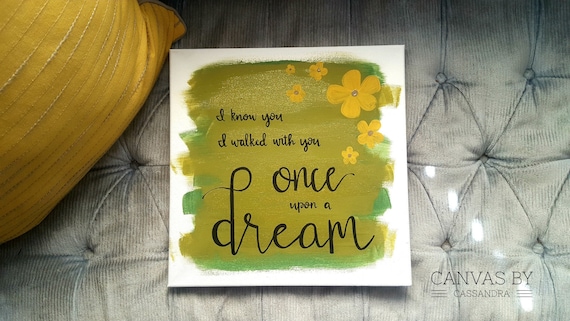 I know you
I walked with you
once
upon a
dream
CANVAS BY
CASSANDRA